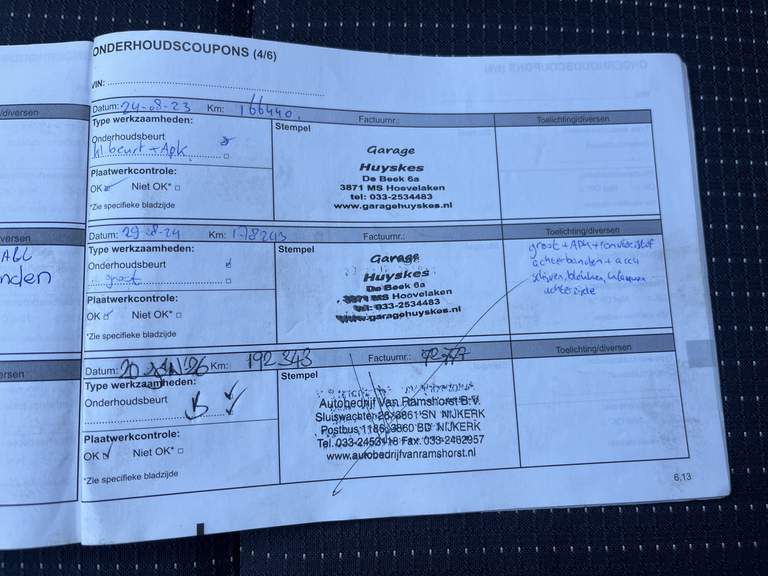 /diversen
ONDERHOUDSCOUPONS (4/6)
VIN:
Datum: 24-08-23 Km: 166440.
Factuurnr.:
Toelichting/diversen
Type werkzaamheden:
Onderhoudsbeurt
kl beurt + Apk
Plaatwerkcontrole:
OK Niet OK*
*Zie specifieke bladzijde
Stempel
Garage
Huyskes
De Beek 6a
3871 MS Hoevelaken
tel: 033-2534483
www.garagehuyskes.nl
versen
ALL
nden
Datum: 29-08-24 Km: 178243
Factuurnr.:
Toelichting/diversen
Type werkzaamheden:
Onderhoudsbeurt
groot
Plaatwerkcontrole:
OK Niet OK*
*Zie specifieke bladzijde
Stempel
Garage
Huyskes
De Beek 6a
3871 MS Hoevelaken
tel: 033-2534483
www.garagehuyskes.nl
groot + APK + remvloeistof
achterbanden + accu
schijven, blokken,
achterzijde
ersen
Datum: 20 JAN '26 Km: 192.243
Factuurnr.:
Toelichting/diversen
Type werkzaamheden:
Onderhoudsbeurt
Plaatwerkcontrole:
OK Niet OK*
*Zie specifieke bladzijde
Stempel
Autobedrijf Van Ramshorst B.V.
Sluiswachter 26, 3861 SN NIJKERK
Postbus 1186, 3860 BD NIJKERK
Tel. 033-2453118 Fax. 033-2462957
www.autobedrijfvanramshorst.nl
6.13